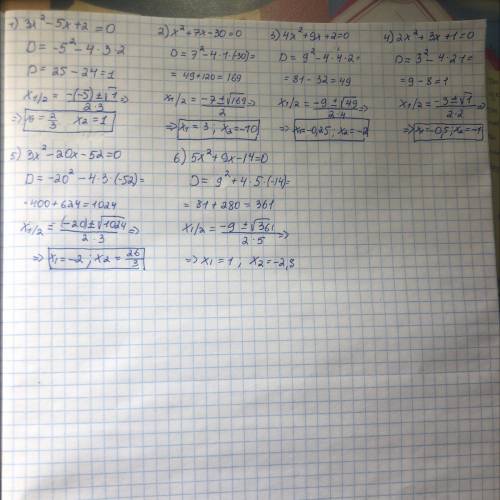 1) 3x²-5x+2=0
D = -5²-4·3·2
D = 25-24=1
x1/2 = -(-5)±√1 / 2·3 ⇒
x1 = 2/3 x2=1
2) x²+7x-30=0
D=7²-4·1·(-30)=
= 49+120=169
x1/2 = -7±√169 / 2 ⇒
⇒ x1=3 ; x2=-10
3) 4x²+9x+2=0
D= 9²-4·4·2=
= 81-32=49
x1/2 = -9±√49 / 2·4
⇒ x1=-0,25; x2=-2
4) 2x²+3x+1=0
D=3²-4·2·1=
= 9-8=1
x1/2 = -3±√1 / 2·2 ⇒
⇒ x1=-0,5; x2=-1
5) 3x²-20x-52=0
D = -20²-4·3·(-52)=
=400+624=1024
x1/2 = (-20)±√1024 / 2·3 ⇒
⇒ x1=-2 ; x2 = 26/3
6) 5x²+9x-14=0
D = 9²+4·5·(-14)=
= 81+280=361
x1/2 = -9±√361 / 2·5 ⇒
⇒ x1=1 ; x2=-2,8